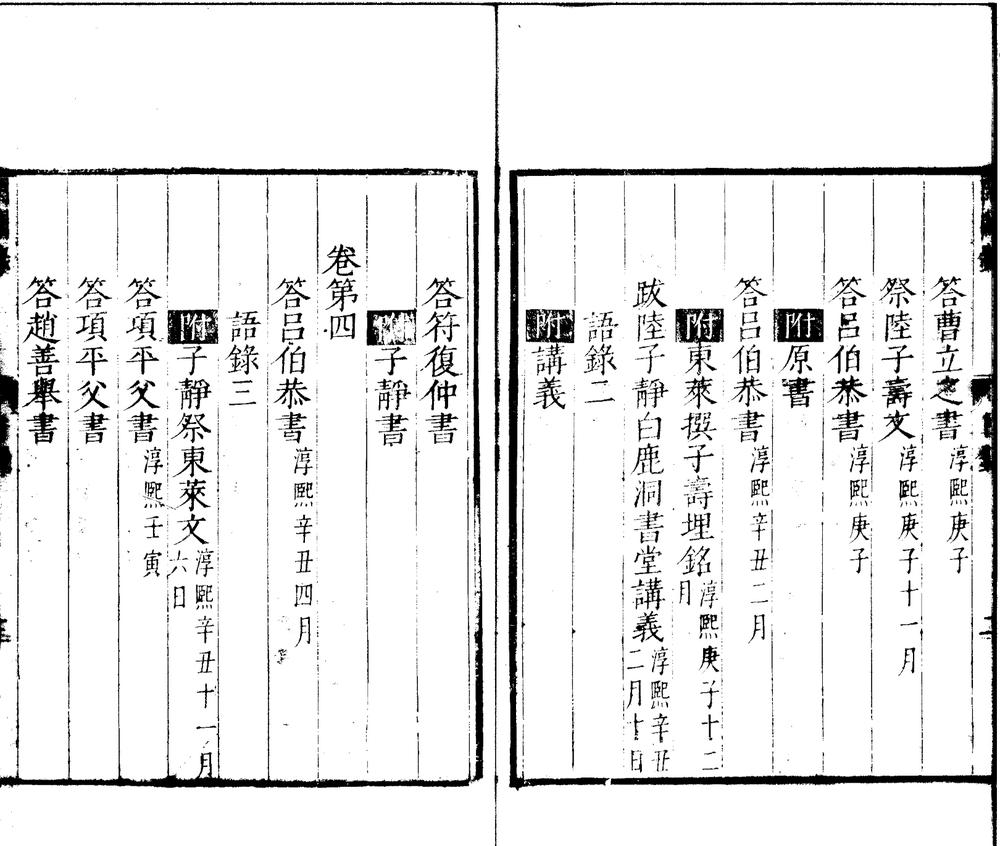 答曹立之書淳熙庚子
祭陸子壽文淳熙庚子十一月
答呂伯恭書淳熙庚子
附原書
答呂伯恭書淳熙辛丑二月
附東萊撰子壽埋銘淳熙庚子十二月
跋陸子靜白鹿洞書堂講義淳熙辛丑二月十日
語錄二
附講義
答符復仲書
附子靜書
卷第四
答呂伯恭書淳熙辛丑四月
語錄三
附子靜祭東萊文淳熙辛丑十一月六日
答項平父書淳熙壬寅
答項平父書
答趙善舉書